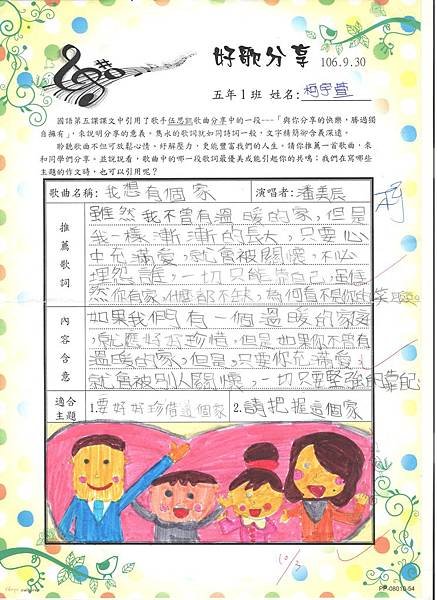 好歌分享 106.9.30
五年1班 姓名: 柯宇萱
國語第五課課文中引用了歌手伍思凱歌曲分享中的一段---「與你分享的快樂,勝過獨
自擁有」,來說明分享的意義。雋永的歌詞就如同詩詞一般,文字精簡卻含義深遠。
聆聽歌曲不但可放鬆心情、紓解壓力,更能豐富我們的人生。請你推薦一首歌曲,來
和同學們分享,並說說看,歌曲中的哪一段歌詞最優美或能引起你的共鳴;我們在寫哪些
主題的作文時,也可以引用呢?
歌曲名稱:我想有個家 演唱者:潘美辰
推薦歌詞
雖然我不曾有溫暖的家,但是
我一樣漸漸的長大,只要心
中充滿愛,就會被關懷,不必
埋怨誰,一切只能靠自己,雖然
你有家,什麼都不缺,為何看不見你的笑
內容含意
如果我們有一個溫暖的家庭
,就應好好珍惜,但是如果你不曾有
溫暖的家,但是,只要你充滿愛,
就會被別人關懷,一切只要堅強的
適合主題
1.要好好珍惜這個家 2.請把握這個家
10/3
PP-08010-54